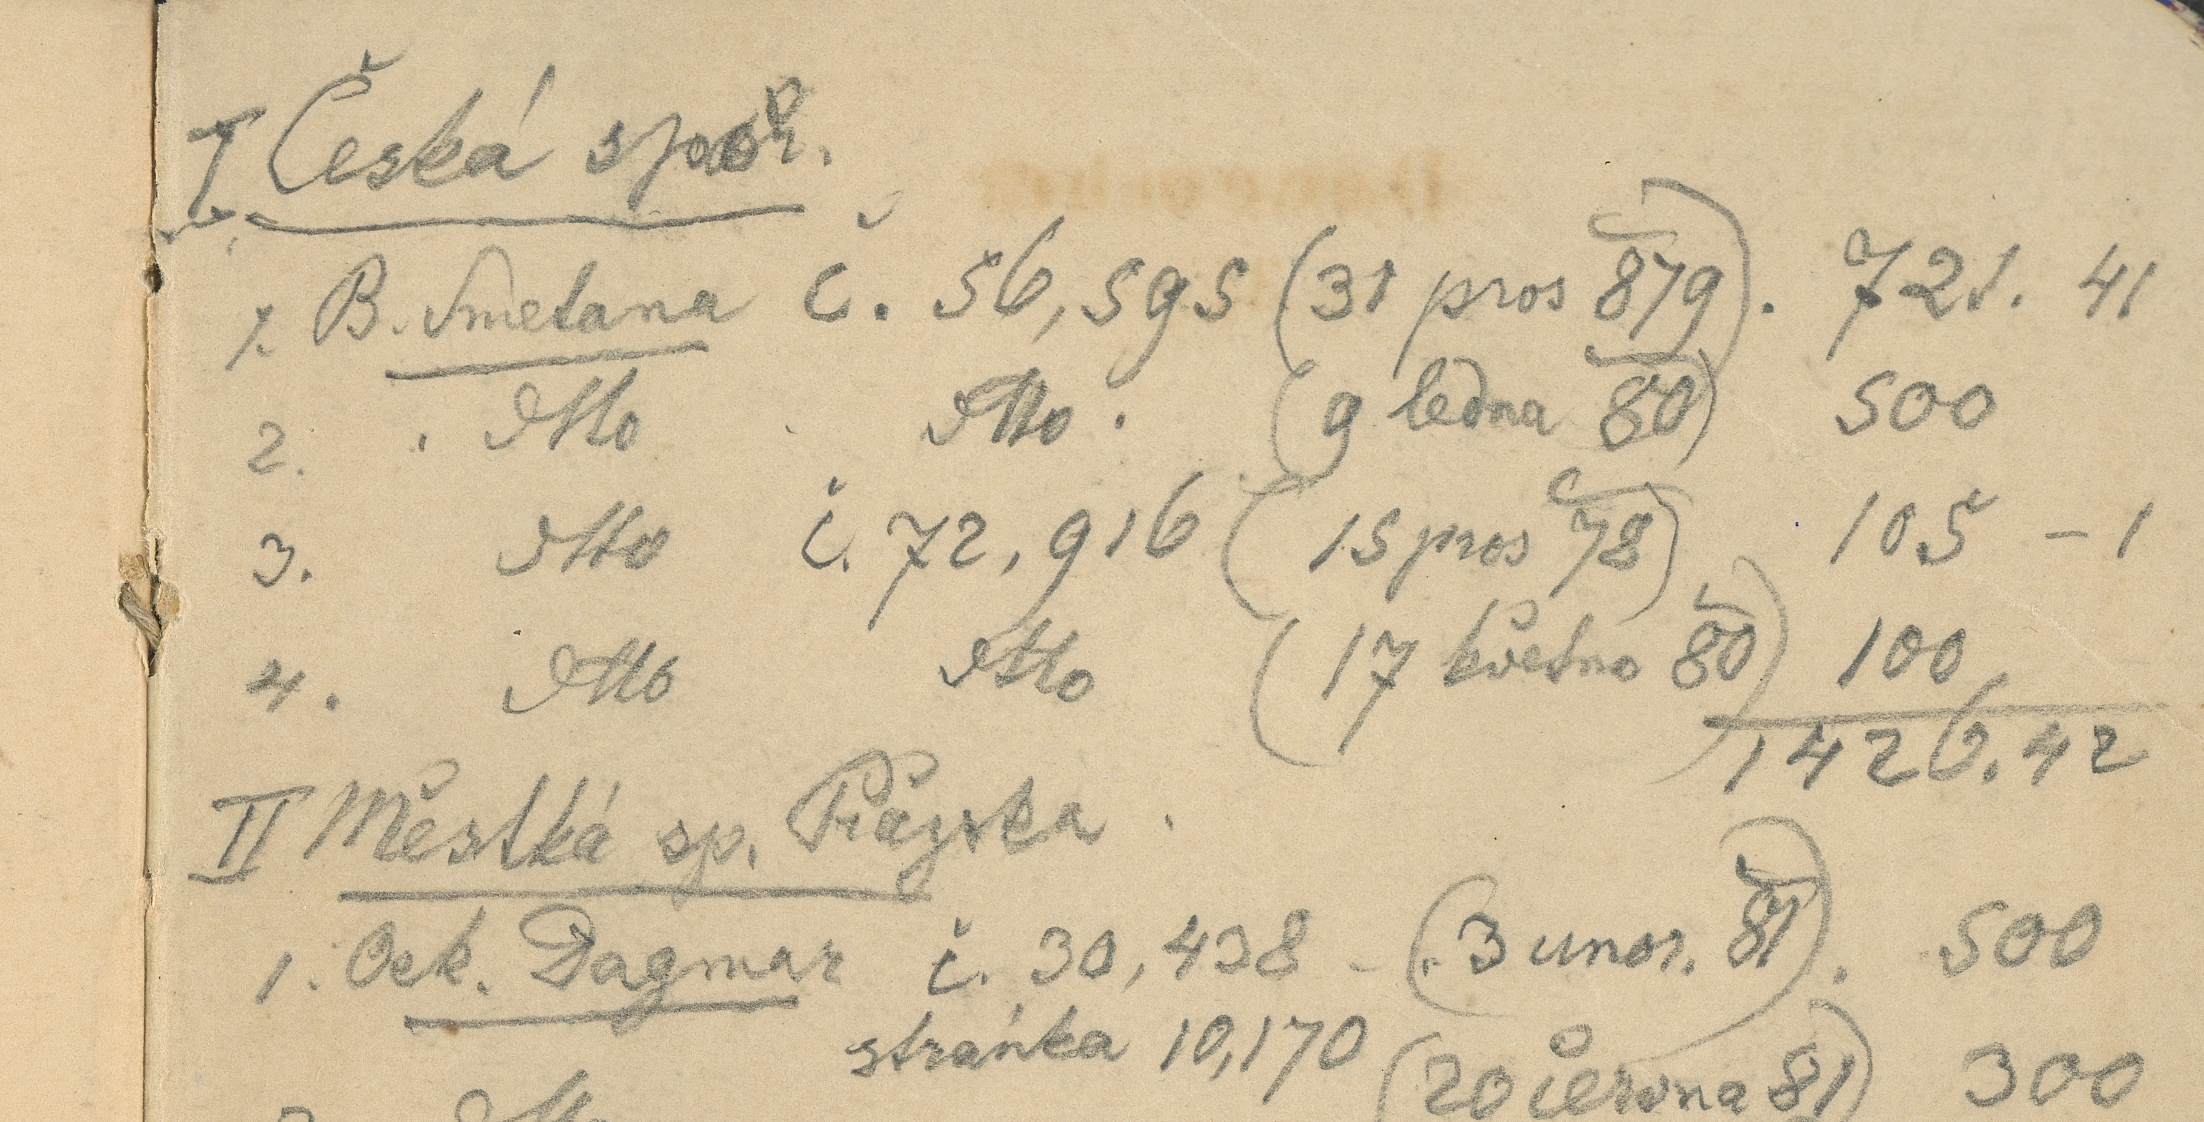 I Česká spoř.
1. B. Smetana č. 56,595 (31 pros 879). 721. 41
2. dtto dtto. (9 ledna 80) 500
3. dtto č. 72,916 (15 pros 78) 105 – 1
4. dtto dtto (17 května 80) 100
1426.42
II Městká sp. Pražska.
1. Ock. Dagmar č. 30,438 – (3 unor. 81). 500
stránka 10,170 (20 června 81) 300